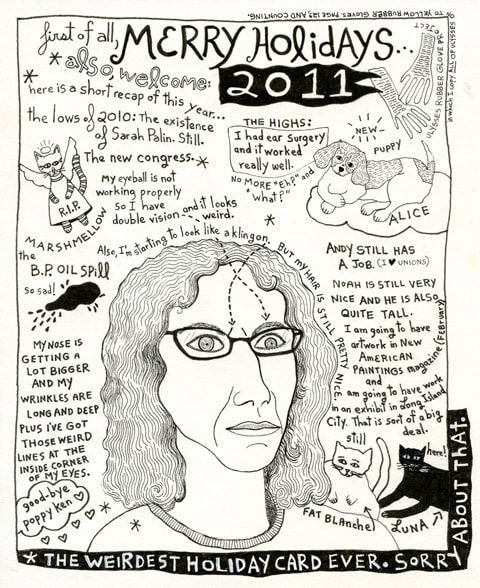 first of all,
MERRY HoLidAYS...
* also, welcome:
2011
here is a short recap of this year...
the lows of 2010: the existence
of Sarah Palin. Still.
The new congress.*
My eyeball is not
working properly
so I have
double vision
and it looks
weird.
Also, I'm starting to look like a klingon. BUT MY HAIR IS STILL PRETTY NICE.
R.I.P.
MARSHMELLOW
the
B.P. OIL SPill
so sad!
MY NOSE IS
GETTING A
LOT BIGGER
AND MY
WRINKLES ARE
LONG AND DEEP
PLUS I'VE GOT
THOSE WEIRD
LINES AT THE
INSIDE CORNER
OF MY EYES.
good-bye
poppy Ken
THE HIGHS:
I had ear surgery
and it worked
really well.
NO MORE "Eh?" and
"what?"
NEW
PUPPY
ALICE
ULYSSES RUBBER GLOVE PROJECT
in which I copy ALL OF ULYSSES
TO YELLOW RUBBER GLOVES. PAGE 123, AND COUNTING.
ANDY STILL HAS
A JOB. (I ♥ UNIONS)
NOAH IS STILL VERY
NICE AND HE IS ALSO
QUITE TALL.
I am going to have
artwork in New
AMERICAN
PAINTINGS magazine (FEBRUARY)
and
am going to have work
in an exhibit in Long Island
City. That is sort of a big
deal.
still
here!
FAT BLANCHE
LUNA
* THE WEIRDEST HOLIDAY CARD EVER. SORRY
ABOUT THAT.